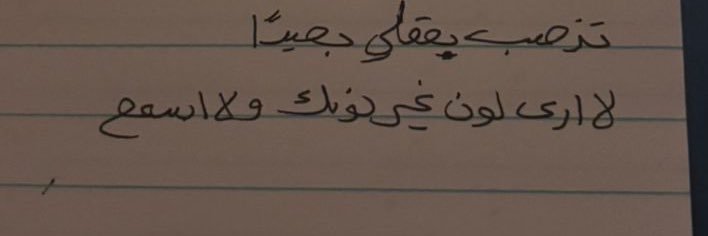 تذهب بعقلي بعيدًا
لا ارى لون غير لونك ولا اسمع